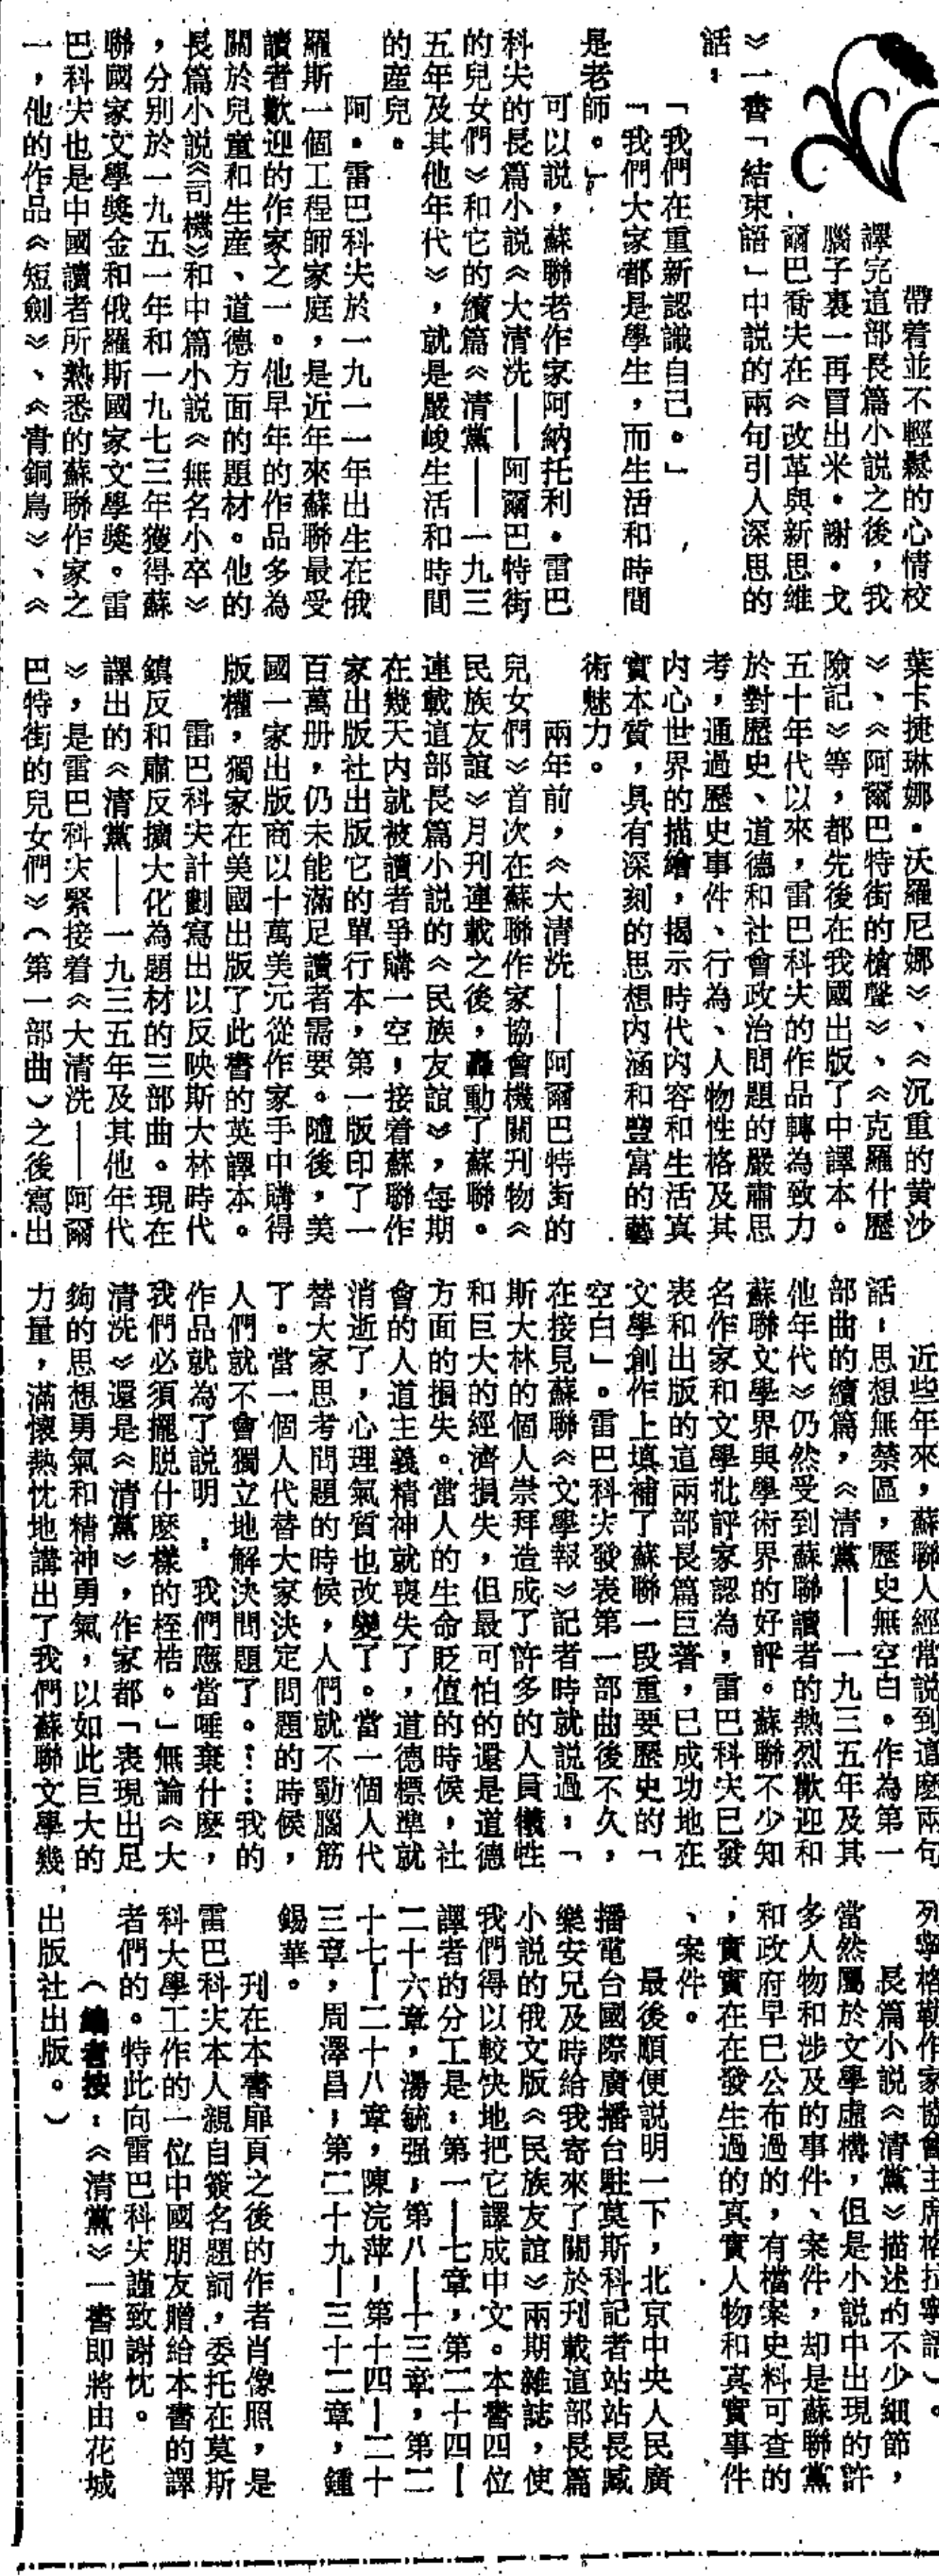 帶着並不輕鬆的心情校
譯完這部長篇小説之後，我
腦子裏一再冒出米·謝·戈
爾巴喬夫在《改革與新思維
》一書「結束語」中説的兩句引人深思的
話：
「我們在重新認識自己。」
「我們大家都是學生，而生活和時間
是老師。」
可以説，蘇聯老作家阿納托利·雷巴
科夫的長篇小説《大清洗——阿爾巴特街
的兒女們》和它的續篇《清黨——一九三
五年及其他年代》，就是嚴峻生活和時間
的産兒。
阿·雷巴科夫於一九一一年出生在俄
羅斯一個工程師家庭，是近年來蘇聯最受
讀者歡迎的作家之一。他早年的作品多為
關於兒童和生産、道德方面的題材。他的
長篇小説《司機》和中篇小説《無名小卒》
，分别於一九五一年和一九七三年獲得蘇
聯國家文學獎金和俄羅斯國家文學獎。雷
巴科夫也是中國讀者所熟悉的蘇聯作家之
一，他的作品《短劍》、《青銅鳥》、《
葉卡捷琳娜·沃羅尼娜》、《沉重的黄沙
》、《阿爾巴特街的槍聲》、《克羅什歷
險記》等，都先後在我國出版了中譯本。
五十年代以來，雷巴科夫的作品轉為致力
於對歷史、道德和社會政治問題的嚴肅思
考，通過歷史事件、行為、人物性格及其
内心世界的描繪，揭示時代内容和生活真
實本質，具有深刻的思想内涵和豐富的藝
術魅力。
兩年前，《大清洗——阿爾巴特街的
兒女們》首次在蘇聯作家協會機關刊物《
民族友誼》月刊連載之後，轟動了蘇聯。
連載這部長篇小説的《民族友誼》，每期
在幾天内就被讀者爭購一空，接着蘇聯作
家出版社出版它的單行本，第一版印了一
百萬册，仍未能滿足讀者需要。隨後，美
國一家出版商以十萬美元從作家手中購得
版權，獨家在美國出版了此書的英譯本。
雷巴科夫計劃寫出以反映斯大林時代
鎮反和肅反擴大化為題材的三部曲。現在
譯出的《清黨——一九三五年及其他年代
》，是雷巴科夫緊接着《大清洗——阿爾
巴特街的兒女們》（第一部曲）之後寫出
近些年來，蘇聯人經常説到這麽兩句
話：思想無禁區，歷史無空白。作為第一
部曲的續篇，《清黨——一九三五年及其
他年代》仍然受到蘇聯讀者的熱烈歡迎和
蘇聯文學界與學術界的好評。蘇聯不少知
名作家和文學批評家認為，雷巴科夫已發
表和出版的這兩部長篇巨著，已成功地在
文學創作上填補了蘇聯一段重要歷史的「
空白」。雷巴科夫發表第一部曲後不久，
在接見蘇聯《文學報》記者時就説過，「
斯大林的個人崇拜造成了許多的人員犧牲
和巨大的經濟損失，但最可怕的還是道德
方面的損失。當人的生命貶值的時候，社
會的人道主義精神就喪失了，道德標準就
消逝了，心理氣質也改變了。當一個人代
替大家思考問題的時候，人們就不動腦筋
了。當一個人代替大家決定問題的時候，
人們就不會獨立地解決問題了。……我的
作品就為了説明：我們應當唾棄什麽，
我們必須擺脱什麽樣的桎梏。」無論《大
清洗》還是《清黨》，作家都「表現出足
夠的思想勇氣和精神勇氣，以如此巨大的
力量，滿懷熱忱地講出了我們蘇聯文學幾
列寧格勒作家協會主席格拉寧語）。
長篇小説《清黨》描述的不少細節，
當然屬於文學虛構，但是小説中出現的許
多人物和涉及的事件、案件，却是蘇聯黨
和政府早已公布過的，有檔案史料可查的
，實實在在發生過的真實人物和真實事件
、案件。
最後順便説明一下，北京中央人民廣
播電台國際廣播台駐莫斯科記者站站長臧
樂安兄及時給我寄來了關於刊載這部長篇
小説的俄文版《民族友誼》兩期雜誌，使
我們得以較快地把它譯成中文。本書四位
譯者的分工是：第一——七章，第二十四—
二十六章，湯毓强；第八—十三章，第二
十七—二十八章，陳浣萍；第十四—二十
三章，周澤昌；第二十九—三十二章，鍾
錫華。
刊在本書扉頁之後的作者肖像照，是
雷巴科夫本人親自簽名題詞，委托在莫斯
科大學工作的一位中國朋友贈給本書的譯
者們的。特此向雷巴科夫謹致謝忱。
（編者按：《清黨》一書即將由花城
出版社出版。）